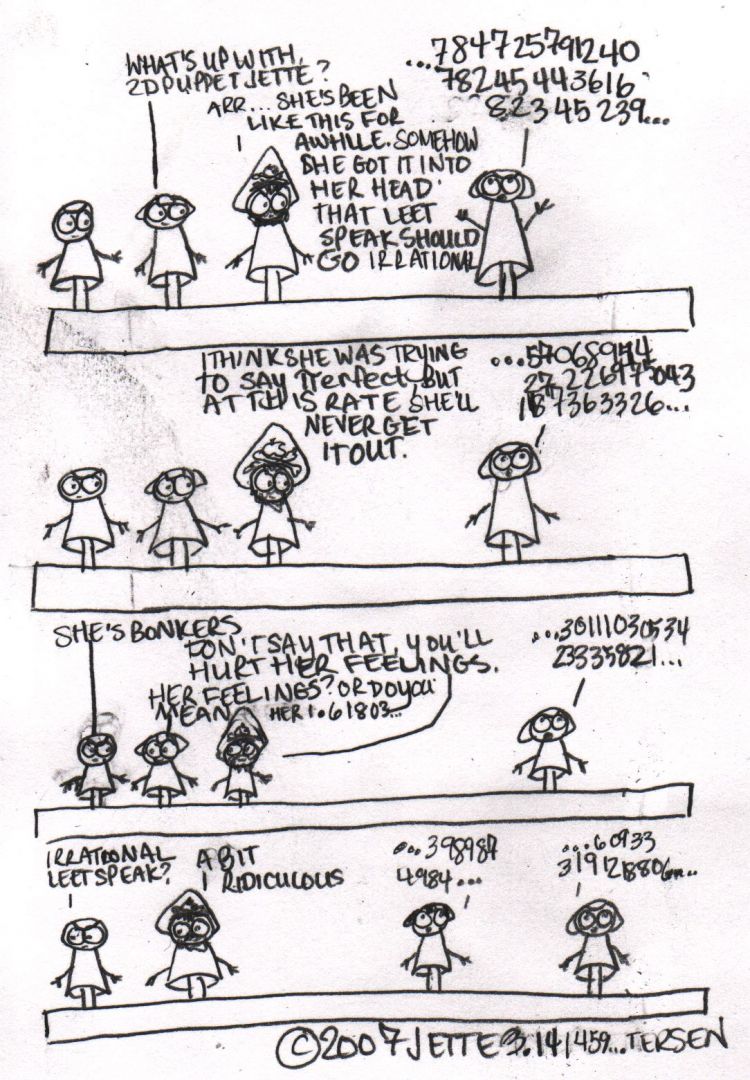 WHAT'S UP WITH
2D PUPPET JETTE?
ARR... SHE'S BEEN
LIKE THIS FOR
AWHILE. SOMEHOW
SHE GOT IT INTO
HER HEAD
THAT LEET
SPEAK SHOULD
GO IRRATIONAL
...784725791240
78245443616
82345239...
I THINK SHE WAS TRYING
TO SAY πerfect, BUT
AT THIS RATE SHE'LL
NEVER GET
IT OUT.
7363326...
SHE'S BONKERS
DON'T SAY THAT, YOU'LL
HURT HER FEELINGS.
HER FEELINGS? OR DO YOU
MEAN HER 1.61803...
...30111030534
23335821...
IRRATIONAL
LEETSPEAK?
A BIT
RIDICULOUS
...398984
4984...
...60933
©2007 JETTE 3.141459...TERSEN